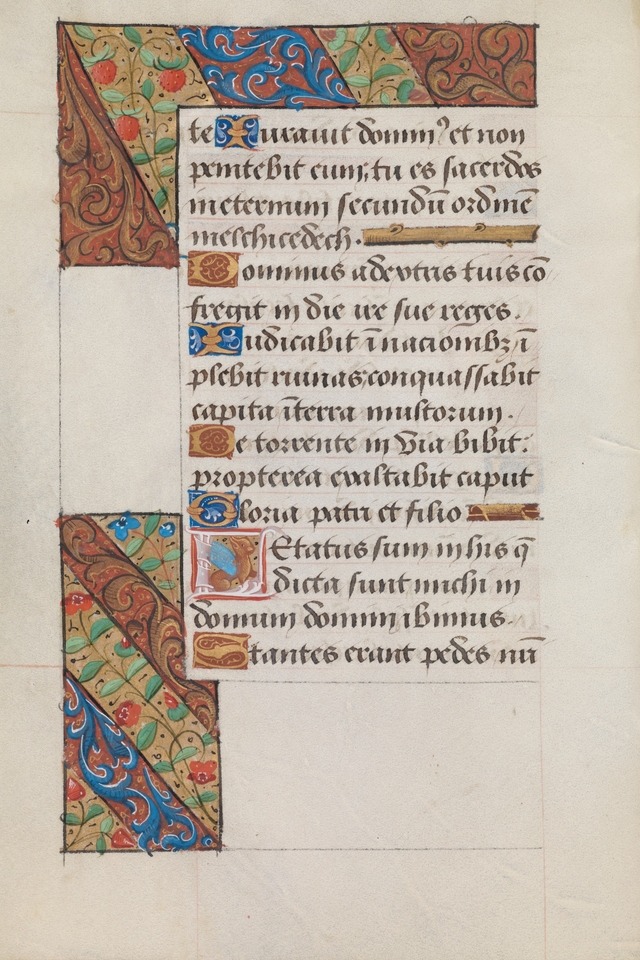 te Iuravit domin⁹ et non
penitebit eum; tu es sacerdos
in eternum secundū ordinē
melchicedech.
Dominus a dextris tuis cō
fregit in die ire sue reges.
Iudicabit ī nacionibꝫ ī
plebit ruinas; conquassabit
capita ī terra multorum.
De torrente in via bibit:
propterea exaltabit caput
Gloria patri et filio
Letatus sum in his q̄
dicta sunt michi in
domum domini ibimus.
Stantes erant pedes nr̄i